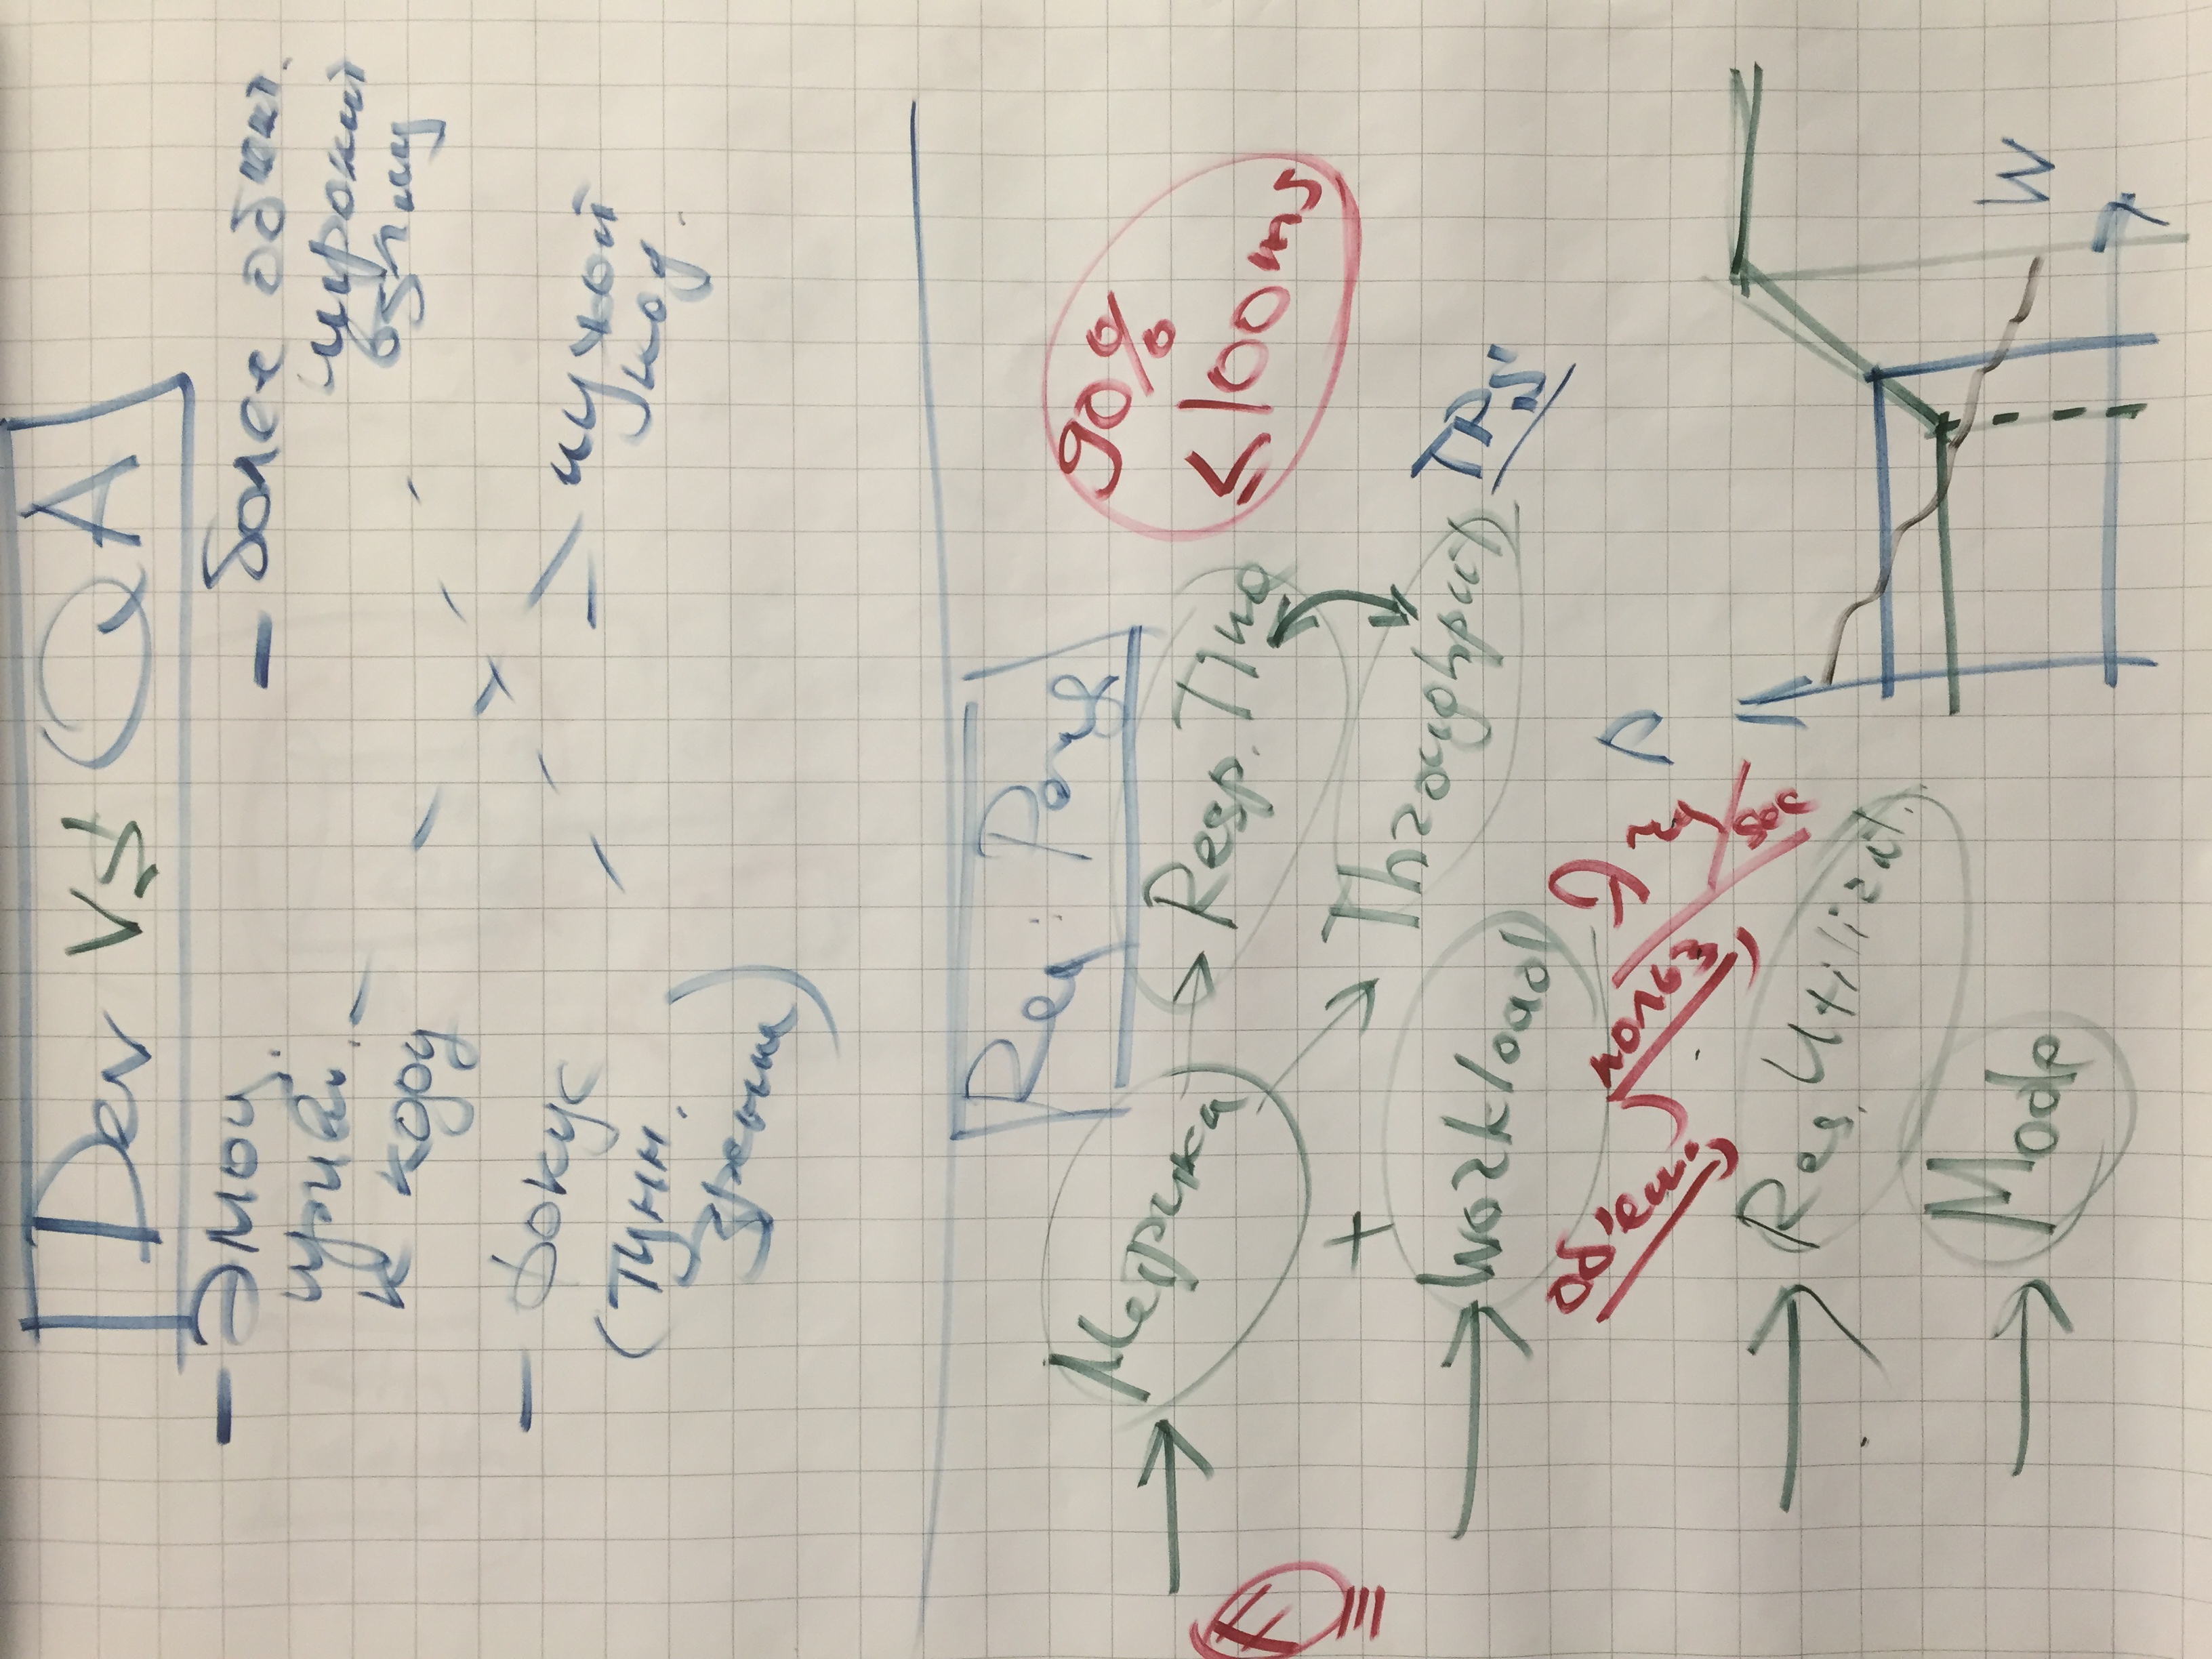 Dev VS QA
- Эмоц.
прив.
к коду
- фокус
(Тунн.
зрения)
- более объект.
широкий
взгляд
- чужой
код.
Req: Perf
Метрика
Resp. Time
90%
≤100ms
+
Throughput
TPS
Workload
объем.,
польз.,
sec
Res. Utilizat.
Mode
W